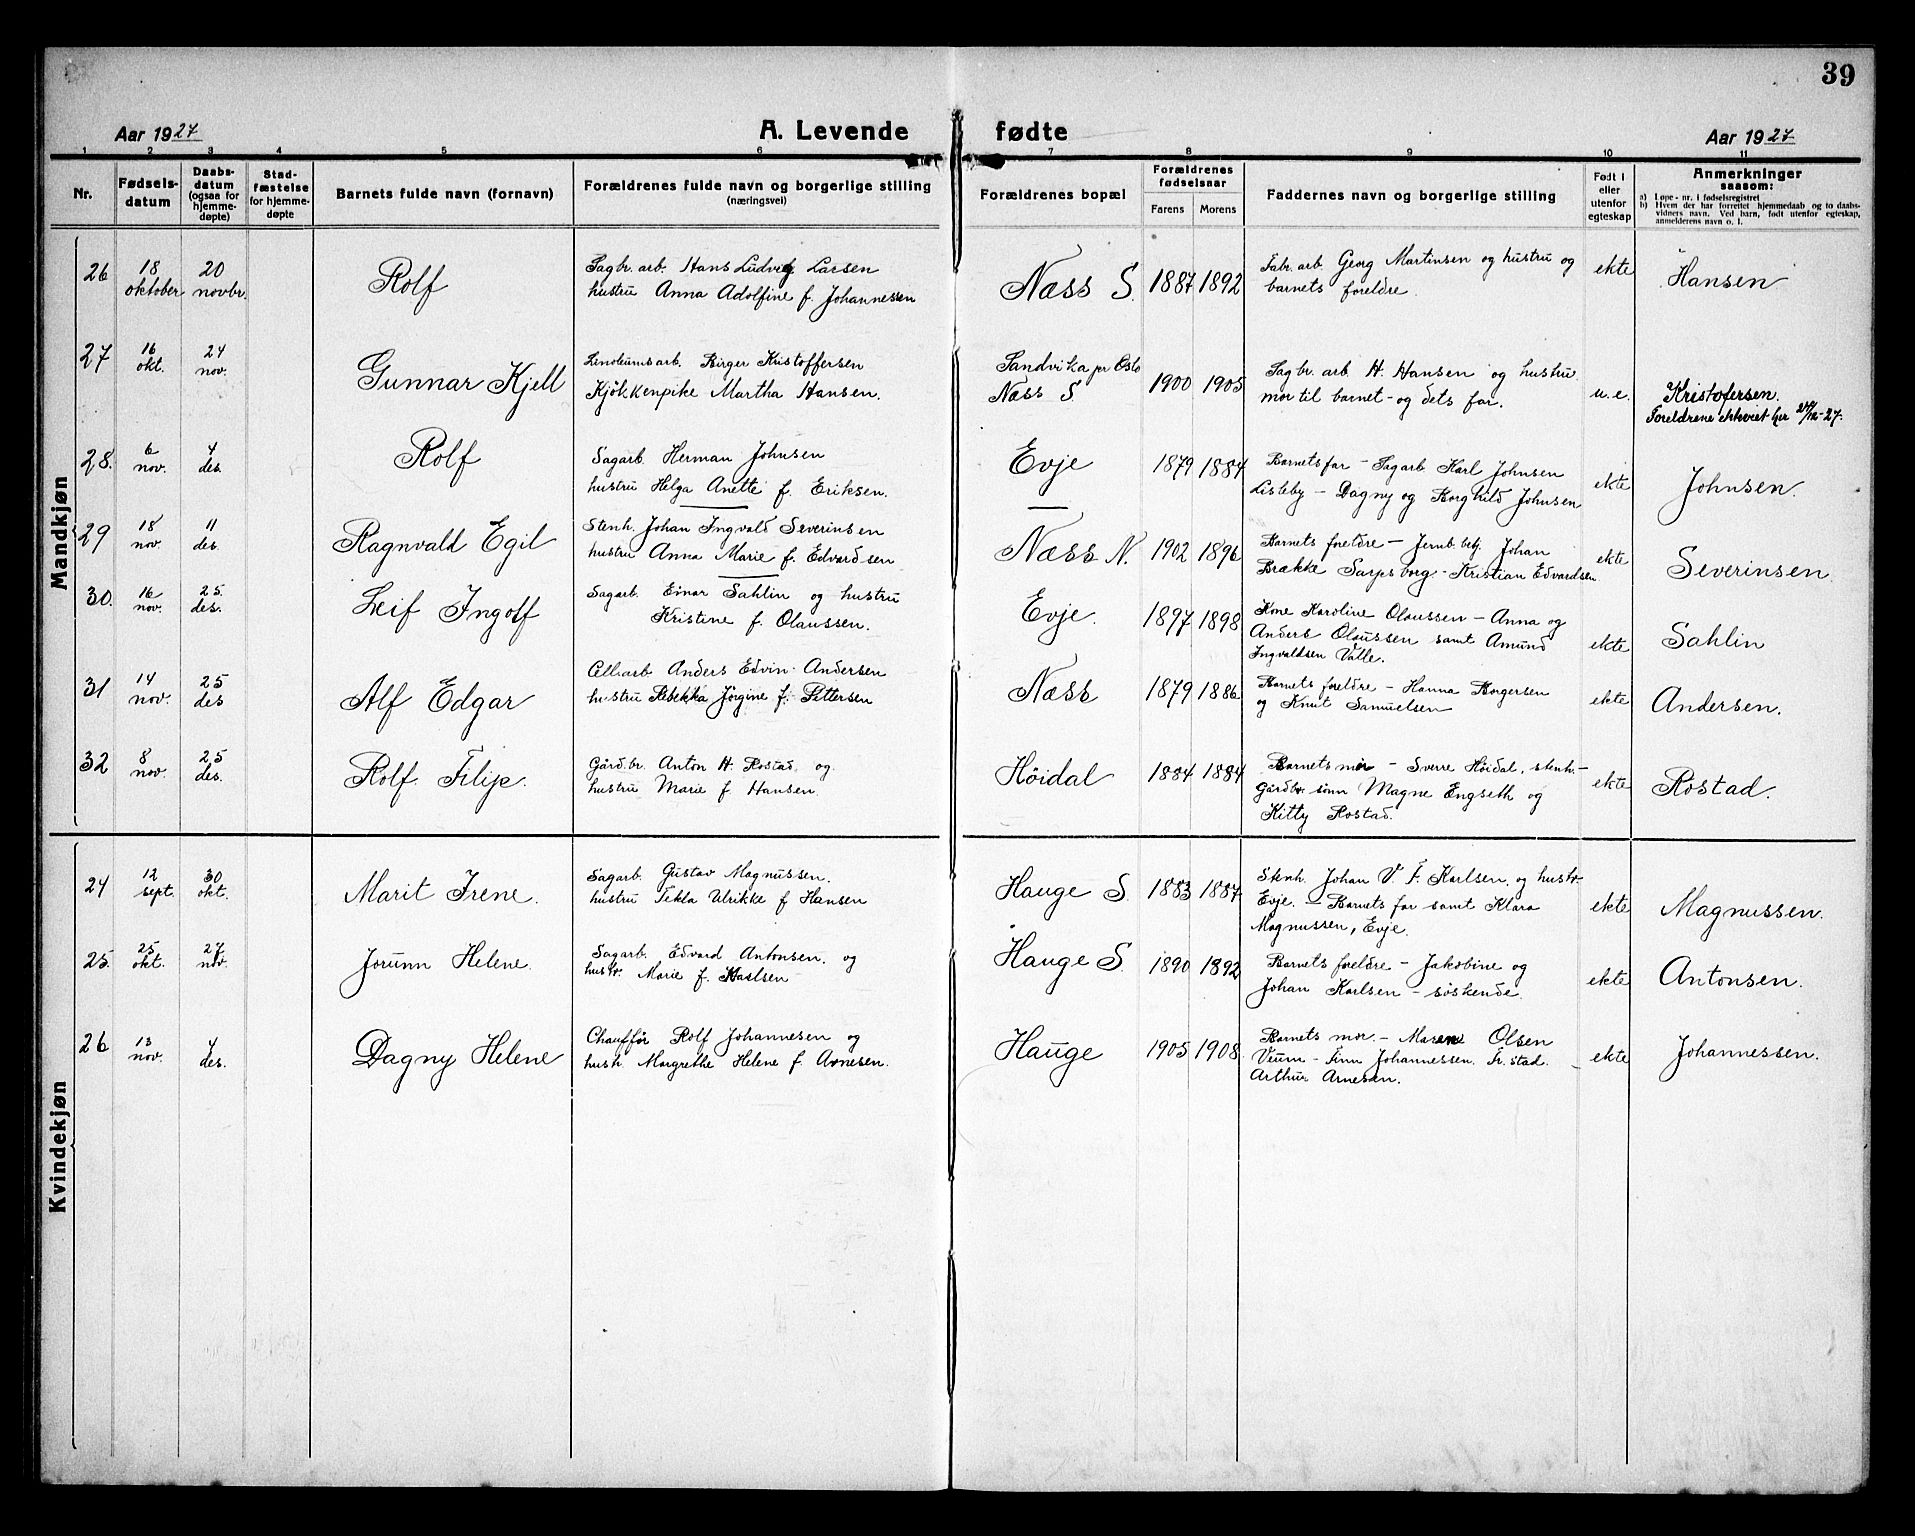 39
Aar 1927 A. Levende fødte Aar 1927
1 2 3 4 5 6 7 8 9 10 11
Nr. Fødsels-datum Daabs-datum (ogsaa for hjemme-døpte) Stad-fæstelse for hjemme-døpte Barnets fulde navn (fornavn) Forældrenes fulde navn og borgerlige stilling (næringsvei) Forældrenes bopæl Forældrenes fødselsaar Farens Morens Faddernes navn og borgerlige stilling Født i eller utenfor egteskap Anmerkninger saasom:
a) Løpe-nr. i fødselsregistret
b) Hvem der har forrettet hjemmedaab og to daabs-vidners navn. Ved barn, født utenfor egteskap, anmelderens navn o. l.
Mandkjøn
26 18 oktober 20 novbr. Rolf
Sagbr. arb. Hans Ludvig Larsen
hustru Anna Adolfine f. Johannessen
Næss S. 1887 1892
Fabr. arb. Georg Martinsen og hustru og
barnets foreldre.
ekte Hansen
27 16 okt. 24 nov. Gunnar Kjell
Linoleumsarb. Birger Kristoffersen
Kjøkkenpike Martha Hansen.
Sandvika pr Oslo
Næss S. 1900 1905
Sagbr. arb. H. Hansen og hustru
mor til barnet - og dets far.
u.e. Kristofersen.
Foreldrene ektviet her 27/12-27.
28. 6 nov. 4 des. Rolf
Sagarb. Herman Johnsen
hustru Helga Anette f. Eriksen.
Evje 1879 1884
Barnets far - Sagarb Karl Johnsen
Lisleby - Dagny og Borghild Johnsen
ekte Johnsen.
29 18 nov. 11 des. Ragnvald Egil
Stenh. Johan Ingvald Severinsen
hustru Anna Marie f. Edvardsen
Næss N. 1902 1896
Barnets foreldre - Jernb. betj. Johan
Brække Sarpsborg - Kristian Edvardsen
ekte Severinsen.
30. 16 nov. 25. des. Leif Ingolf
Sagarb. Einar Sahlin og hustru
Kristine f. Olaussen.
Evje. 1897 1898
Kone Karoline Olaussen - Anna og
Anders Olaussen samt Amund
Ingvaldsen Valle.
ekte Sahlin
31 14 nov. 25 des Alf Edgar
Cellarb Anders Edvin Andersen
hustru Rebekka Jørgine f. Pettersen
Næss 1879 1886
Barnets foreldre - Hanna Borgersen
og Knut Samuelsen
ekte Andersen.
32 8 nov. 25 des. Rolf Filip.
Gårdbr. Anton H. Rostad, og
hustru Marie f. Hansen.
Höidal 1884 1884
Barnets mor - Sverre Höidal, stenh. -
Gårdbr. sönn Magne Engseth og
Kitty Rostad.
ekte Rostad.
Kvindekjøn
24 12 sept. 30 okt. Marit Irene.
Sagarb. Gustav Magnussen.
hustru Tekla Ulrikke f Hansen
Hauge S. 1883 1887
Stenh. Johan V. F. Karlsen. og hustr.
Evje. - Barnets far samt Klara
Magnussen, Evje.
ekte Magnussen.
25. 25 okt. 27 nov. Jorunn Helene.
Sagarb. Edvard Antonsen. og
hustr. Marie f. Karlsen
Hauge S. 1890 1892
Barnets foreldre - Jakobine og
Johan Karlsen - söskende.
ekte Antonsen.
26 13 nov. 4 des. Dagny Helene
Chauffør Rolf Johannesen og
hustr. Margrethe Helene f. Arnesen.
Hauge 1905 1908
Barnets mor. - Maren Olsen
Veum - Finn Johannessen. Fr. stad. -
Arthur Arnesen.
ekte Johannessen.